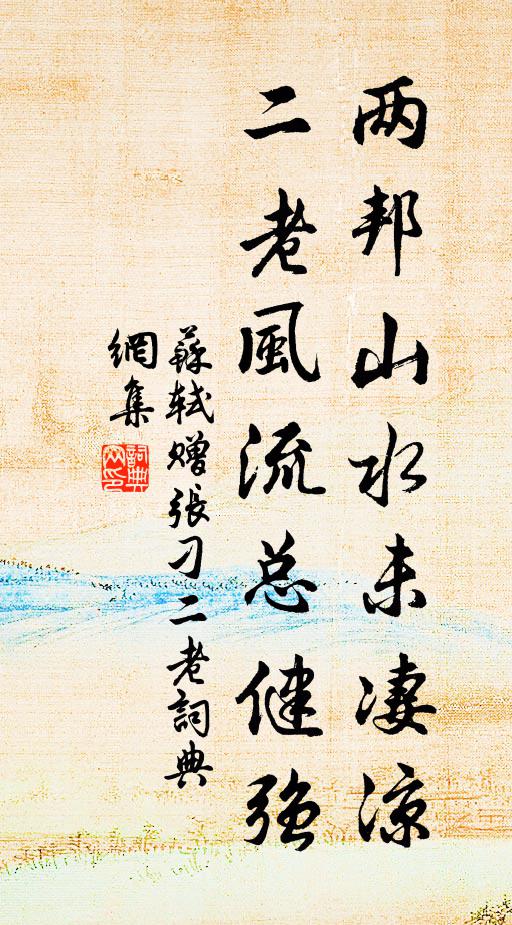 两邦山水未凄涼
二老風流总健強
蘇轼赠張刁二老詞典
網集
詞典
网印